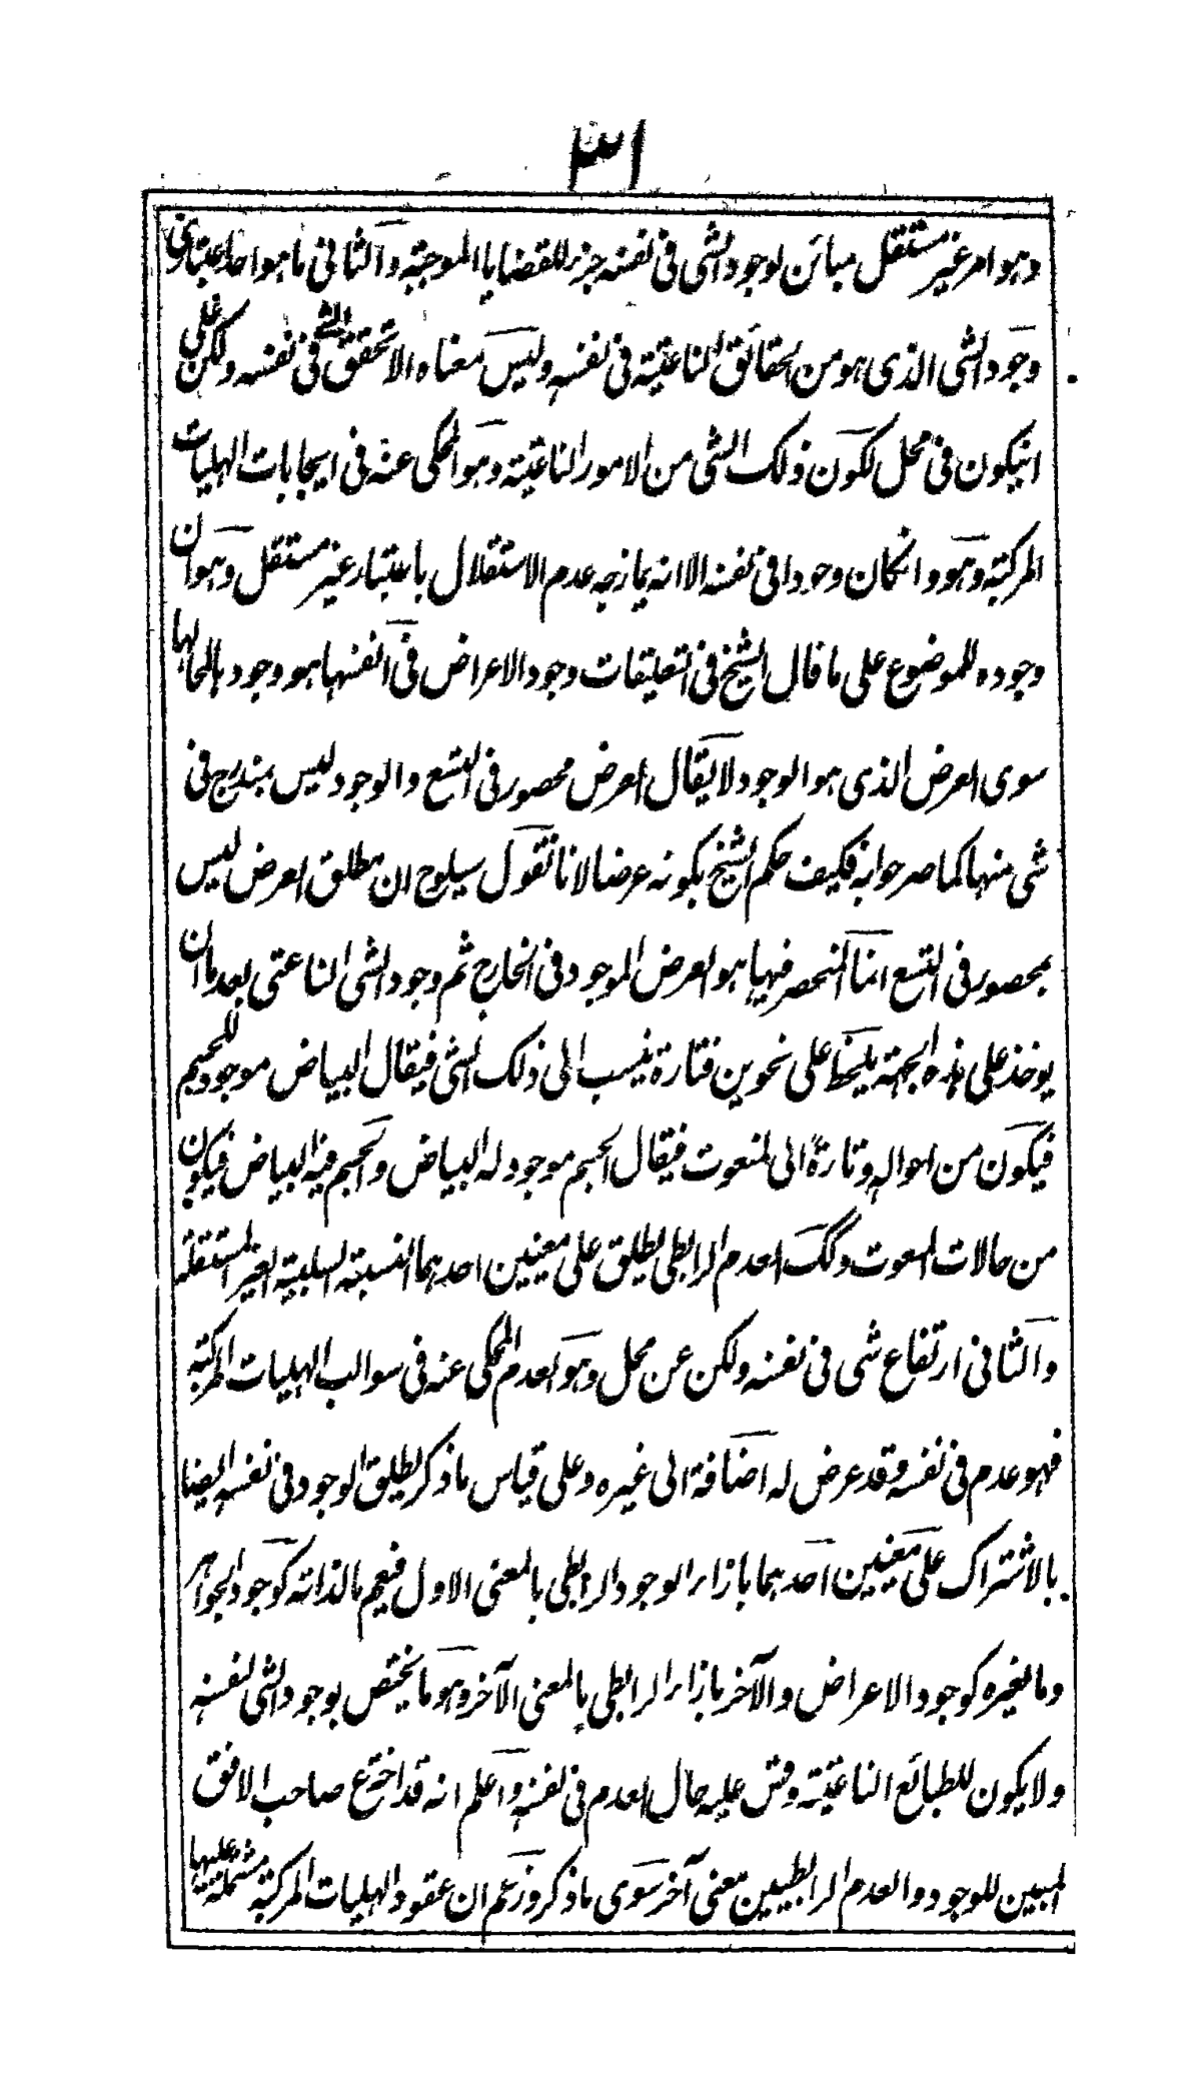 ٣١
وهو امر غير مستقل مبائن لوجود الشى فى نفسه جزء للقضايا الموجبة والثانى ما هو احد اعتبارى
وجود الشى الذى هو من الحقائق الناعتية فى نفسه وليس معناه الا تحقق الشى فى نفسه ولكن على
انيكون فى محل لكون ذلك الشى من الامور الناعتية وهو المحكى عنه فى ايجابات الهليات
المركبة وهو وانكان وجودا فى نفسه الا انه يمازجه عدم الاستقلال باعتبار غير مستقل وهو ان
وجوده للموضوع على ما قال الشيخ فى التعليقات وجود الاعراض فى انفسها هو وجودها لمحالها
سوى العرض الذى هو الوجود لا يقال العرض محصور فى التسع والوجود ليس بمندرج فى
شى منها كما صرحوا به فكيف حكم الشيخ بكونه عرضا لانا نقول سيلوح ان مطلق العرض ليس
بمحصور فى التسع انما المنحصر فيها هو العرض الموجود فى الخارج ثم وجود الشى الناعتى بعد ما ان
يوخذ على هذه الجهة يلحظ على نحوين فتارة ينسب الى ذلك الشى فيقال البياض موجود للجسم
فيكون من احواله وتارة الى المنعوت فيقال الجسم موجود له البياض والجسم فيه البياض فيكون
من حالات المنعوت وكك العدم الرابطى يطلق على معنيين احدهما النسبة السلبية الغير المستقلة
والثانى ارتفاع شى فى نفسه ولكن عن محل وهو العدم المحكى عنه فى سوالب الهليات المركبة
فهو عدم فى نفسه وقد عرض له اضافة الى غيره وعلى قياس ما ذكر يطلق الوجود فى نفسه ايضا
بالاشتراك على معنيين احدهما بازاء الوجود الرابطى بالمعنى الاول فيعم ما لذاته كوجود الجواهر
وما لغيره كوجود الاعراض والآخر بازاء الرابطى بالمعنى الآخر وهو ما يختص بوجود الشى لنفسه
ولا يكون للطبائع الناعتية وقس عليه حال العدم فى نفسه واعلم انه قد اخترع صاحب الافق
المبين للوجود والعدم الرابطيين معنى آخر سوى ما ذكر وزعم ان عقود الهليات المركبة مشتملة عليها